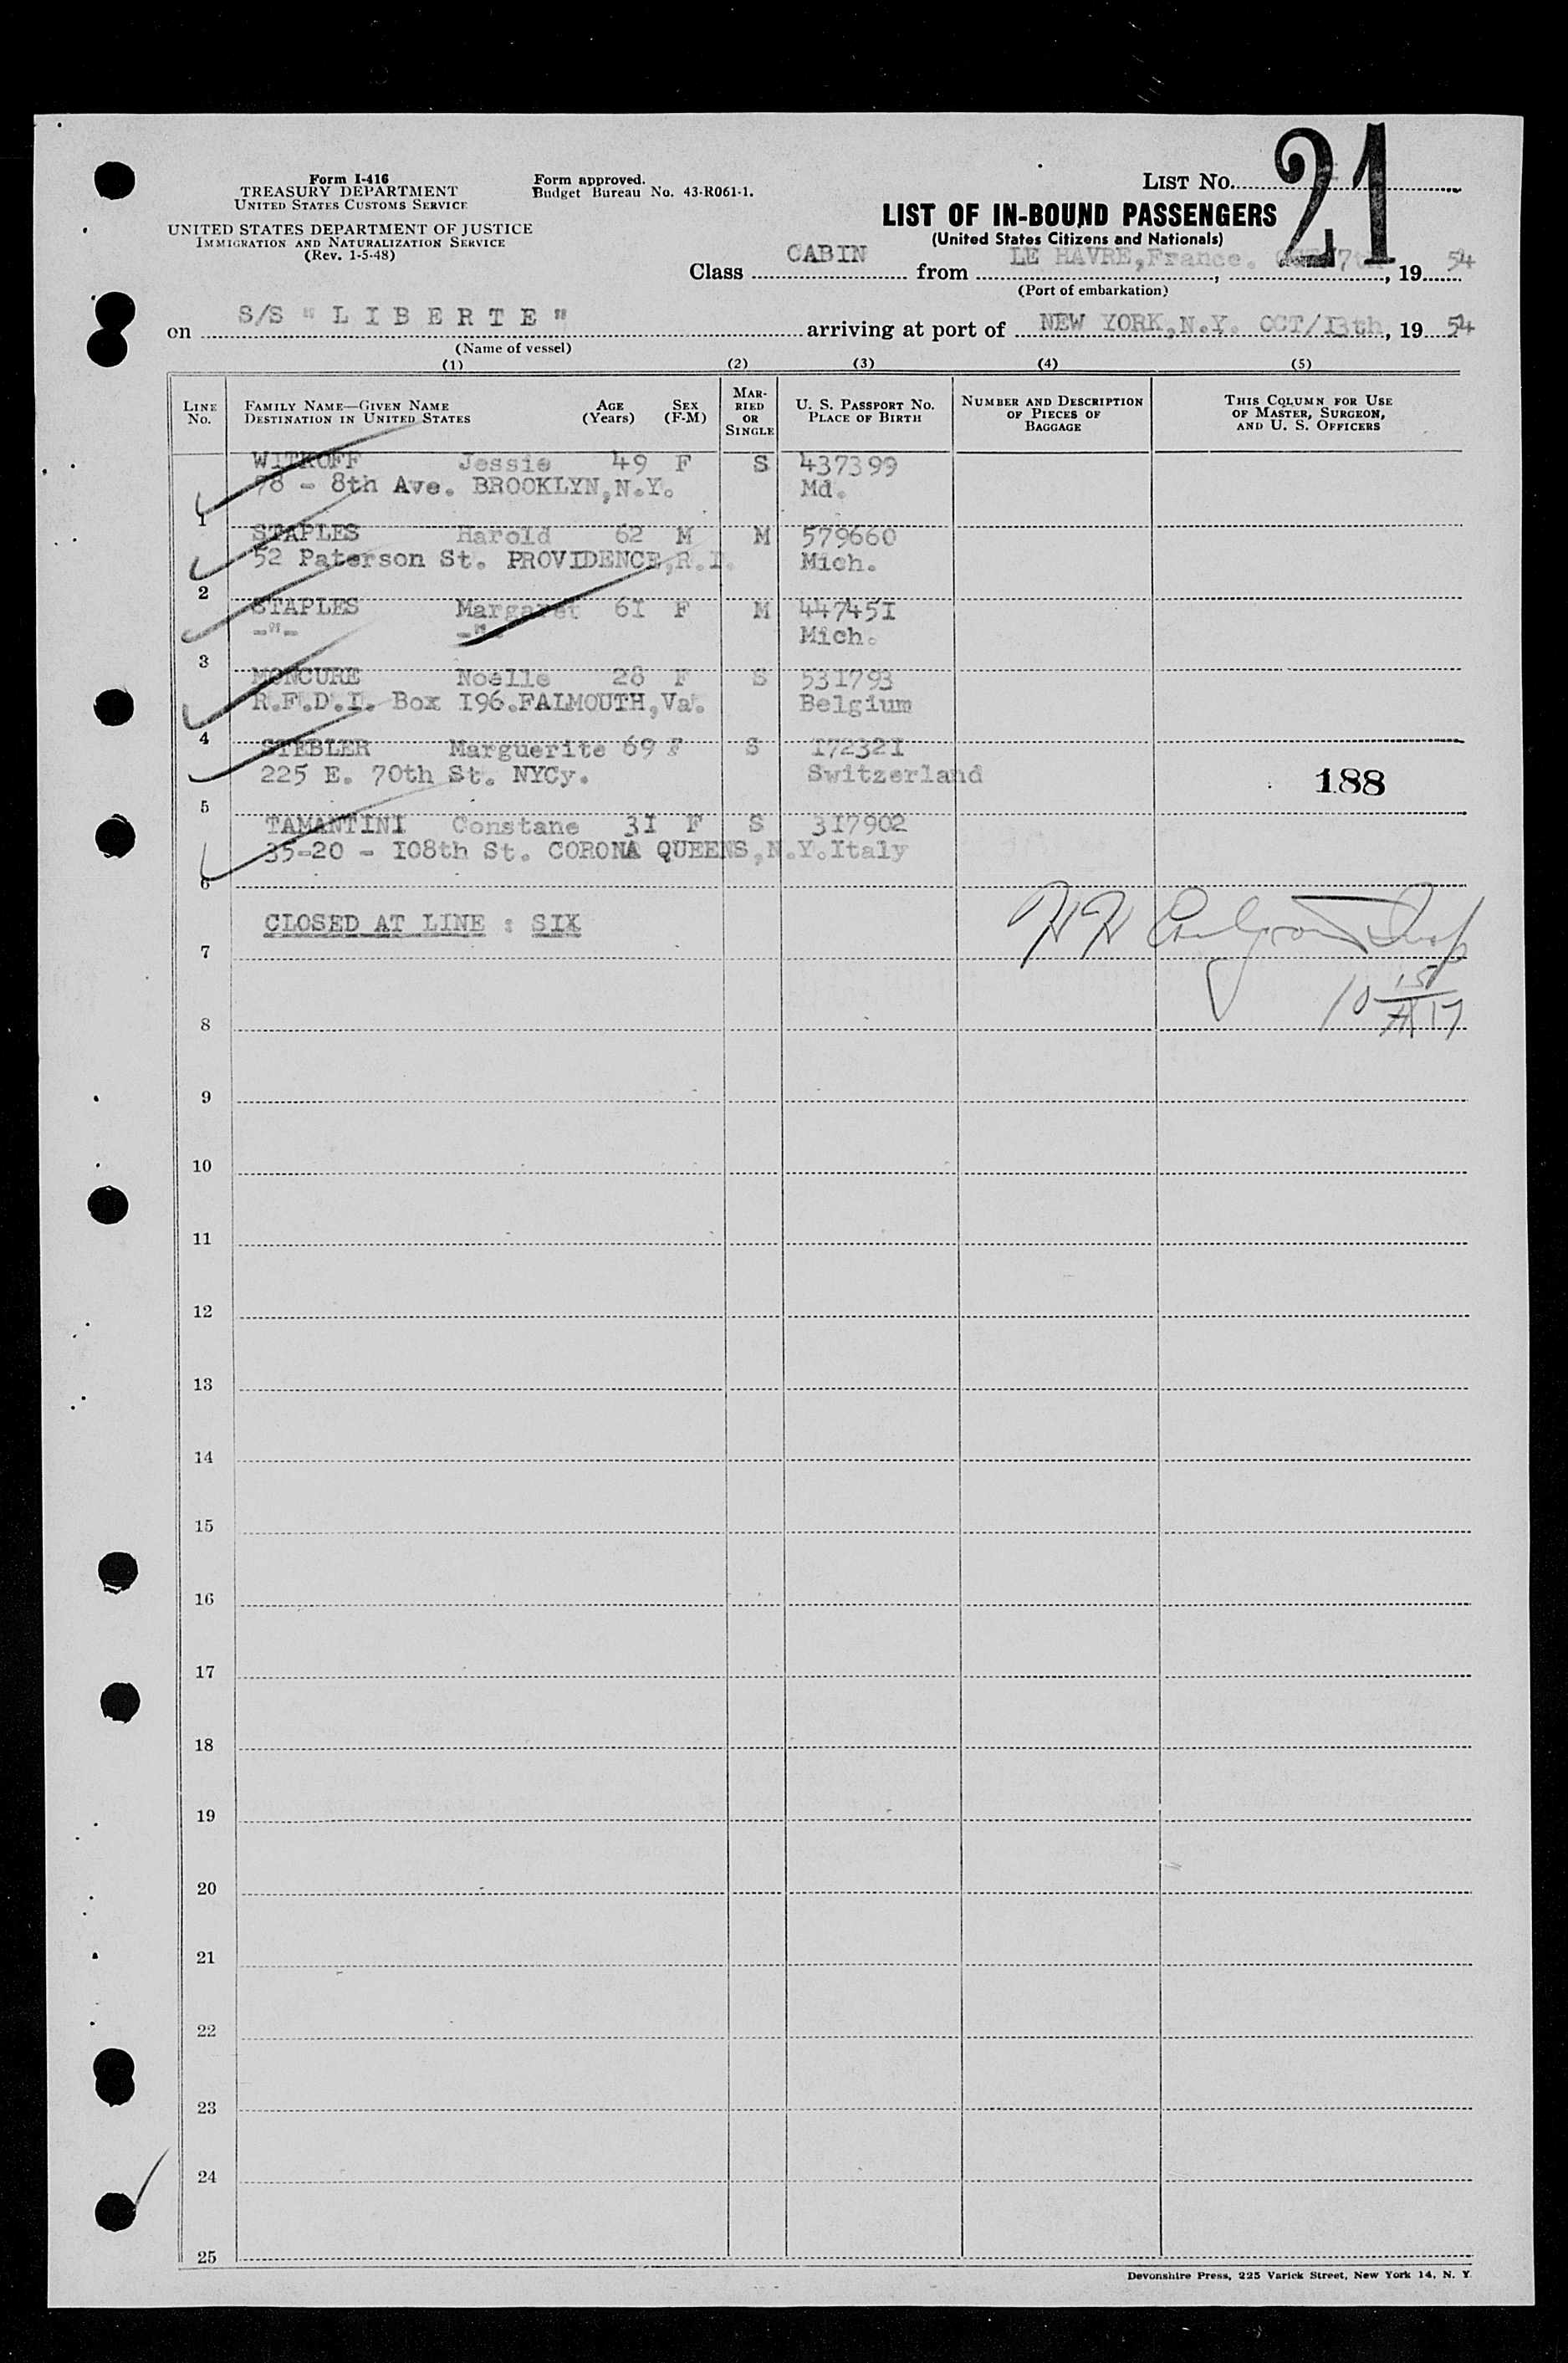 Form I-416
TREASURY DEPARTMENT
UNITED STATES CUSTOMS SERVICE
UNITED STATES DEPARTMENT OF JUSTICE
IMMIGRATION AND NATURALIZATION SERVICE
(Rev. 1-5-48)
Form approved.
Budget Bureau No. 43-R061-1.
LIST NO. 21
LIST OF IN-BOUND PASSENGERS
(United States Citizens and Nationals)
Class CABIN from LE HAVRE,France. 7th, 19 54
(Port of embarkation)
on S/S " L I B E R T E " arriving at port of NEW YORK,N.Y. OCT/I3th, 19 54
(Name of vessel)
(1) (2) (3) (4) (5)
LINE NO. FAMILY NAME—GIVEN NAME DESTINATION IN UNITED STATES AGE (Years) SEX (F-M) MARRIED OR SINGLE U. S. PASSPORT NO. PLACE OF BIRTH NUMBER AND DESCRIPTION OF PIECES OF BAGGAGE THIS COLUMN FOR USE OF MASTER, SURGEON, AND U. S. OFFICERS
WITKOFF Jessie 49 F S 437399
78 - 8th Ave. BROOKLYN,N.Y. Md.
1
STAPLES Harold 62 M M 579660
52 Paterson St. PROVIDENCE,R.I. Mich.
2
STAPLES Margaret 6I F M 44745I
-"- -"- Mich.
3
MONCURE Noelle 28 F S 53I793
R.F.D.I. Box I96.FALMOUTH,Va. Belgium
4
STEBLER Marguerite 69 F S I7232I
225 E. 70th St. NYCy. Switzerland
188
5
TAMANTINI Constane 3I F S 3I7902
35-20 - I08th St. CORONA QUEENS,N.Y.Italy
6
CLOSED AT LINE : SIX
7
8
9
10
11
12
13
14
15
16
17
18
19
20
21
22
23
24
25
Devonshire Press, 225 Varick Street, New York 14, N. Y.